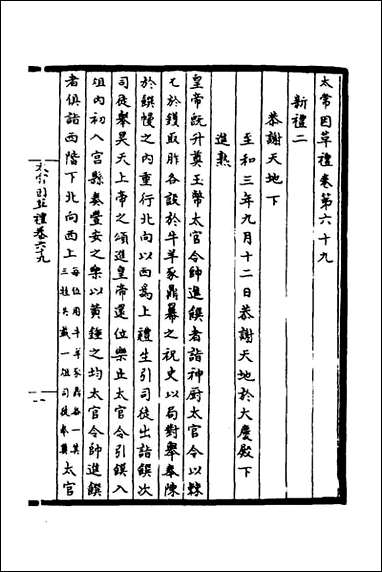 太常因革禮卷第六十九
新禮二
恭謝天地下
至和三年九月十二日恭謝天地於大慶殿下
進熟
皇帝既升奠玉幣太官令帥進饌者詣神厨太官令以
匕於鑊取胙各設於牛羊豕鼎冪之祝史以局對舉奉陳
於饌幔之內重行北向以西為上禮生引司徒出詣饌次
司徒奉昊天上帝之頒進皇帝還位樂止太官令引饌入
俎內初入宮縣奏豐安之樂以黃鍾之均太官令帥進饌
者俱詣西階下北向西上每位用牛羊豕鼎各一其三牲共載一俎司徒奉奠太官
太常因革禮卷六十九
一